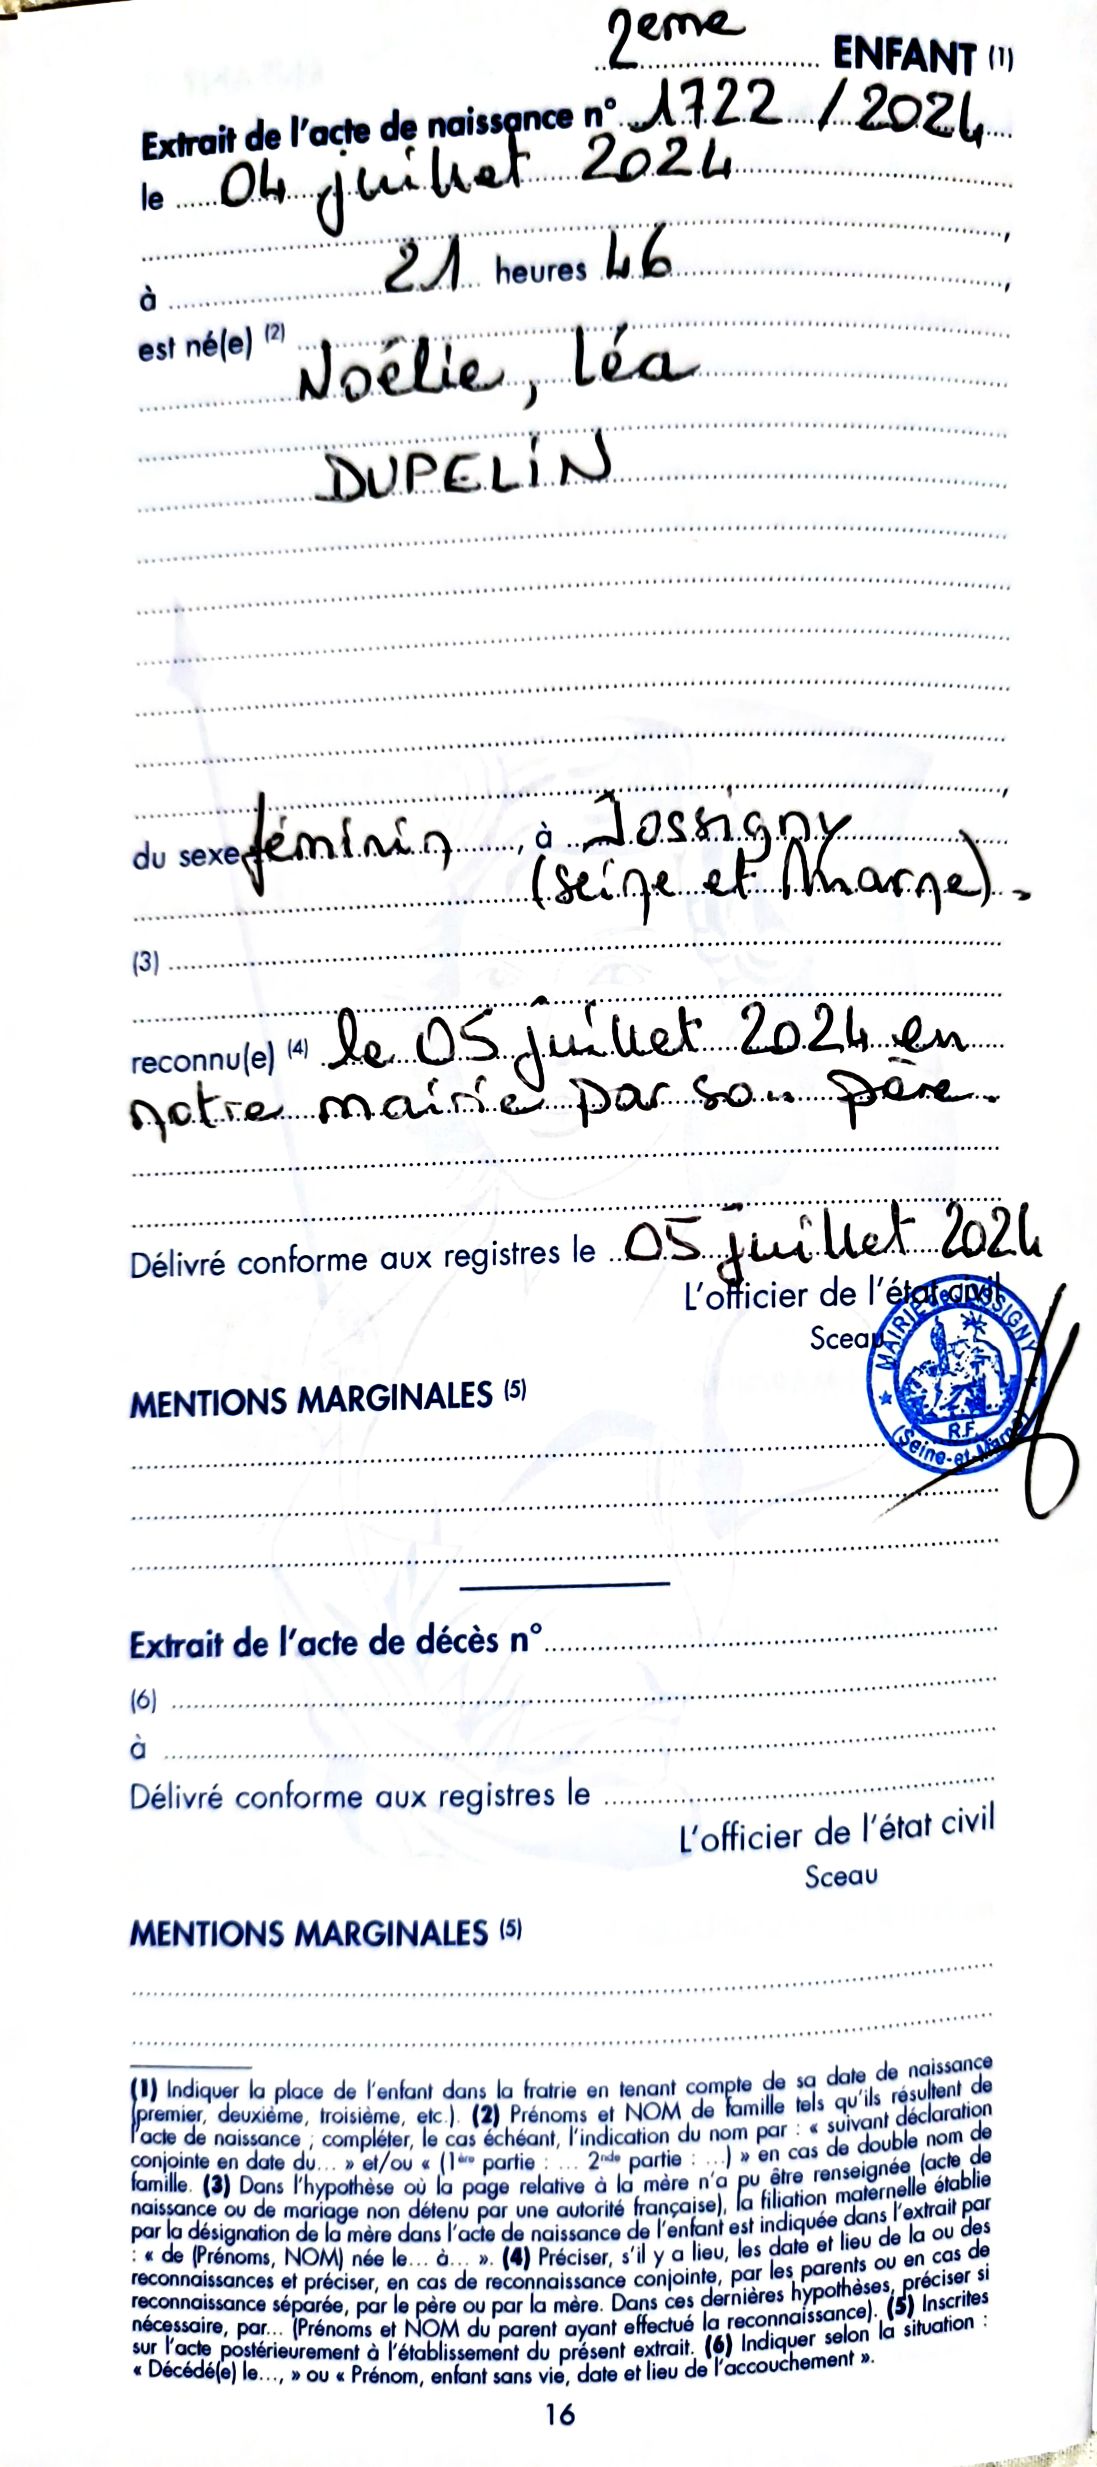 2eme ENFANT (1)
Extrait de l'acte de naissance n° 1722 / 2024
le 04 juillet 2024
,
à 21 heures 46 ,
est né(e) (2)
Noélie, Léa
DUPELIN
,
du sexe féminin, à Jossigny
(Seine et Marne).
(3)
reconnu(e) (4) le 05 juillet 2024 en
notre mairie par son père.
Délivré conforme aux registres le 05 juillet 2024
L'officier de l'état civil
Sceau
MAIRIE de JOSSIGNY
R.F.
(Seine-et-Marne)
MENTIONS MARGINALES (5)
Extrait de l'acte de décès n°
(6)
à
Délivré conforme aux registres le
L'officier de l'état civil
Sceau
MENTIONS MARGINALES (5)
(1) Indiquer la place de l'enfant dans la fratrie en tenant compte de sa date de naissance
(premier, deuxième, troisième, etc.). (2) Prénoms et NOM de famille tels qu'ils résultent de
l'acte de naissance ; compléter, le cas échéant, l'indication du nom par : « suivant déclaration
conjointe en date du... » et/ou « (1ère partie : ... 2nde partie : ...) » en cas de double nom de
famille. (3) Dans l'hypothèse où la page relative à la mère n'a pu être renseignée (acte de
naissance ou de mariage non détenu par une autorité française), la filiation maternelle établie
par la désignation de la mère dans l'acte de naissance de l'enfant est indiquée dans l'extrait par
: « de (Prénoms, NOM) née le... à... ». (4) Préciser, s'il y a lieu, les date et lieu de la ou des
reconnaissances et préciser, en cas de reconnaissance conjointe, par les parents ou en cas de
reconnaissance séparée, par le père ou par la mère. Dans ces dernières hypothèses, préciser si
nécessaire, par... (Prénoms et NOM du parent ayant effectué la reconnaissance). (5) Inscrites
sur l'acte postérieurement à l'établissement du présent extrait. (6) Indiquer selon la situation :
« Décédé(e) le..., » ou « Prénom, enfant sans vie, date et lieu de l'accouchement ».
16